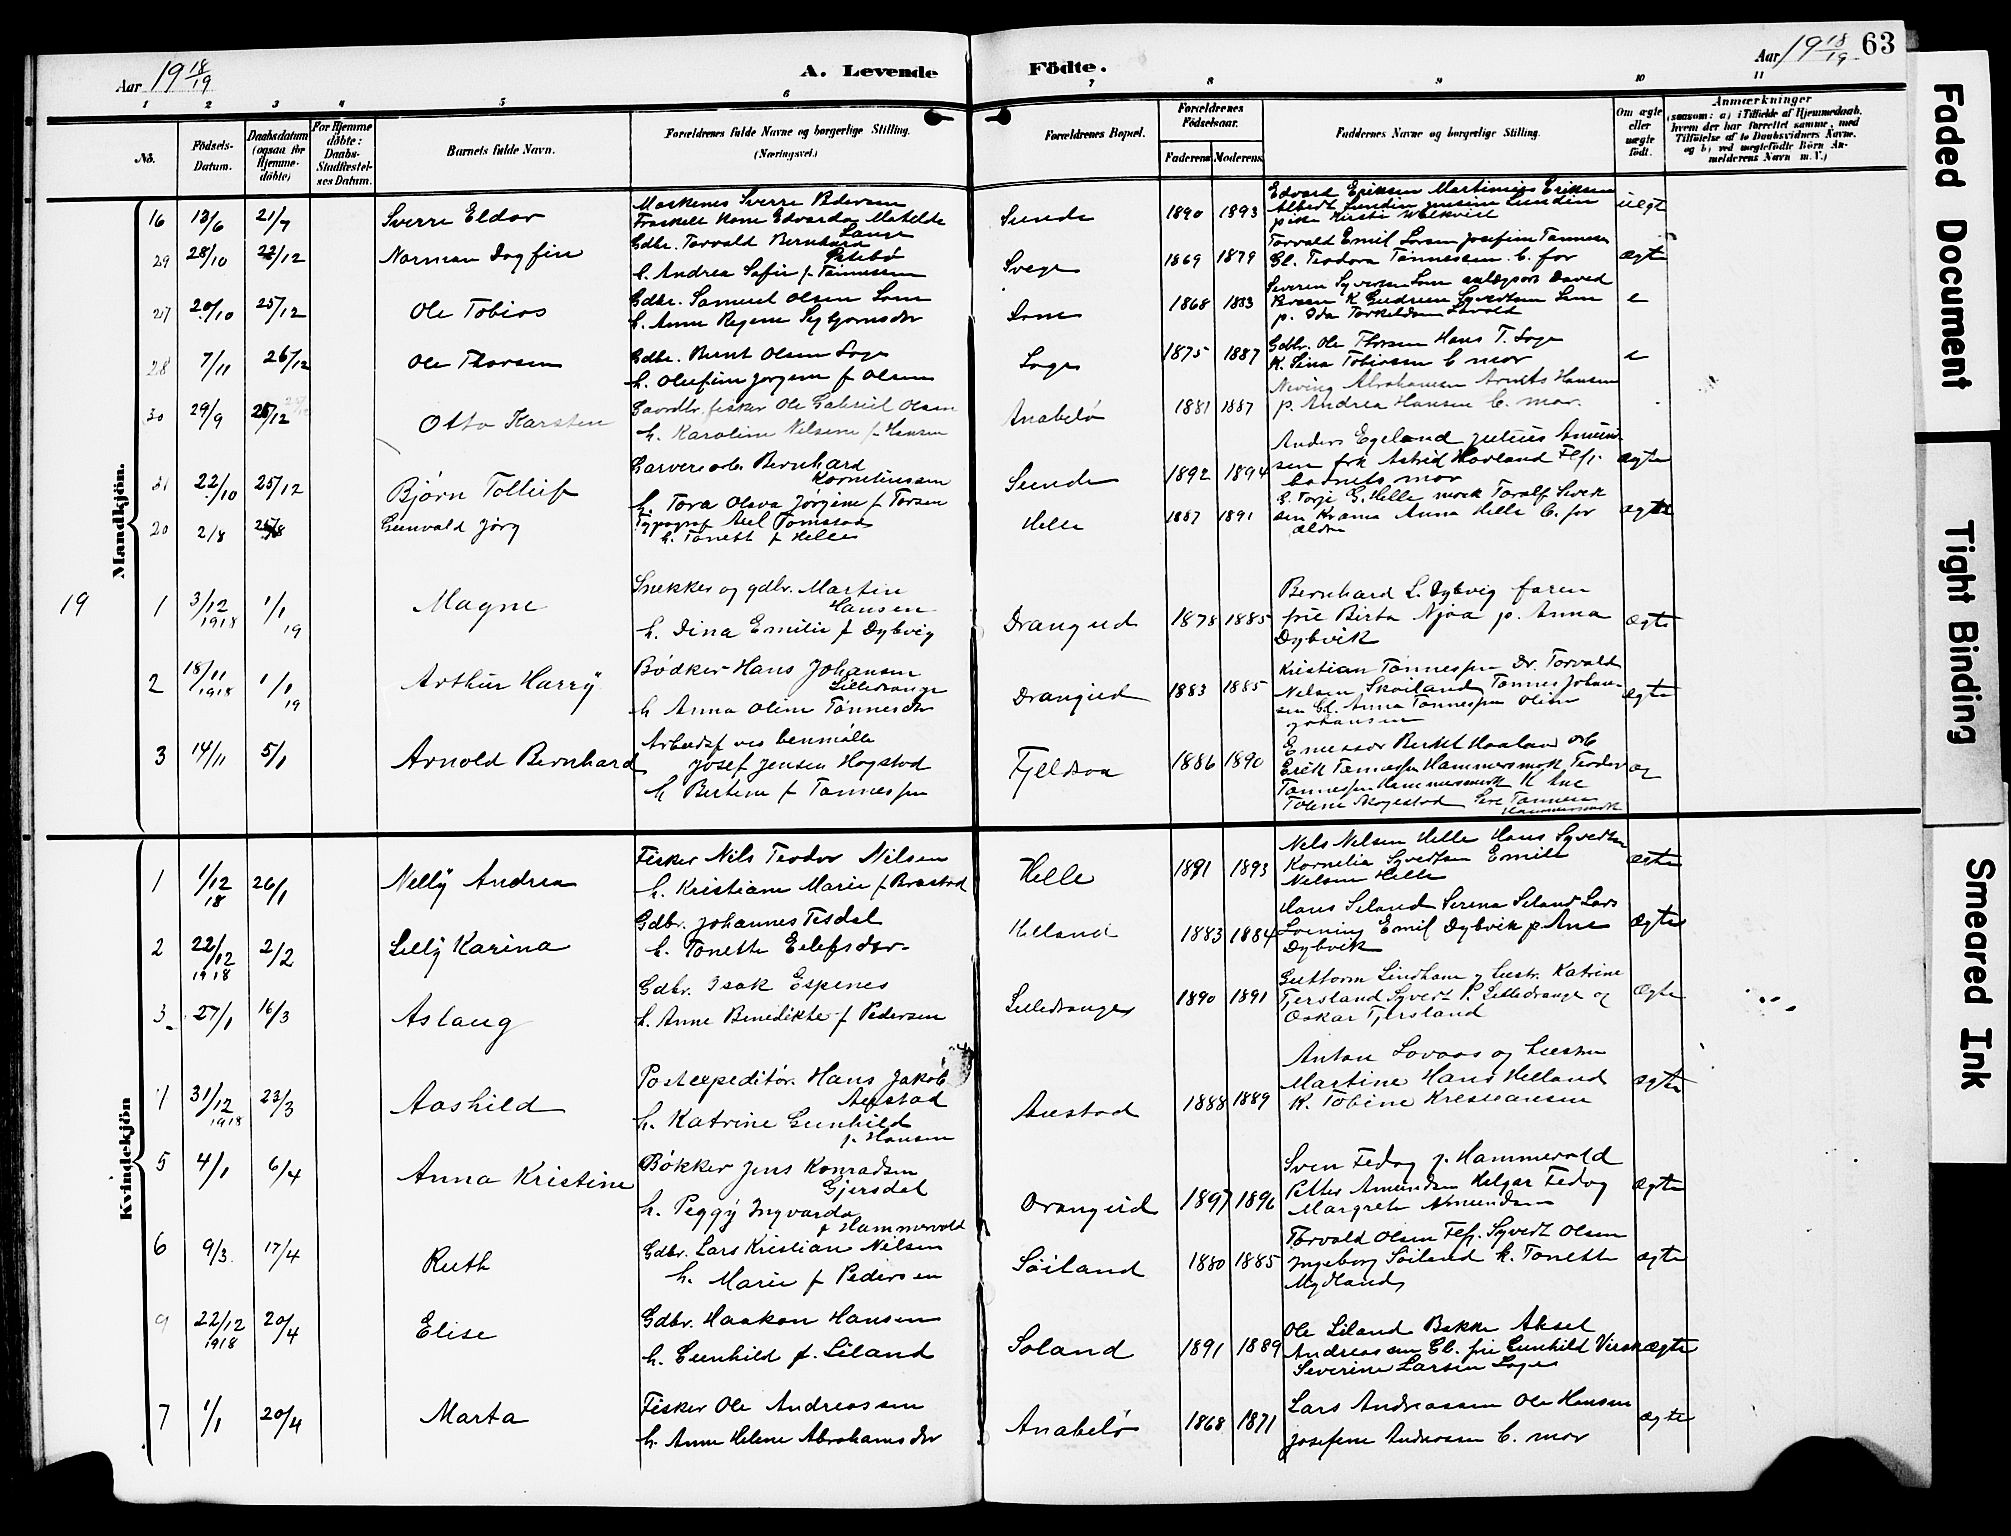 Aar 19 18/19
A. Levende
Födte.
Aar 19 18/19
63
1 2 3 4 5 6 7 8 9 10 11
No.
Födsels-Datum.
Daabsdatum (ogsaa for Hjemme-döbte)
For Hjemme döbte: Daabs-Stadfæstel-ses Datum.
Barnets fulde Navn.
Forældrenes fulde Navne og borgerlige Stilling. (Næringsvei.)
Forældrenes Bopæl.
Forældrenes Födselsaar.
Faderens Moderens
Faddernes Navne og borgerlige Stilling.
Om ægte eller uægte födt.
Anmærkninger
(saasom: a) i Tilfælde af Hjemmedaab, hvem der har forrettet samme, med Tilföielse af to Daabsvidners Navne. og b) ved uægtefödte Börn An-melderens Navn m. V.)
Mandkjön.
16 13/6 21/7 Sverre Eldor
Maskenes Sverre Pedersen
Fraskilt Kone Edvarda Matilde Lange
Sunde 1890 1893
Edvard Eriksen Martinius Eriksen
Albert Lundin Lundin
pike Kirsti
uegt
29 28/10 22/12 Norman Dagfin
Gdbr. Torvald Bernhard
h. Andrea Sofie f Tønnessen
Svege 1869 1879
Torvald Emil Larsen Josefine Tønnese
Gl. Teodora Tønnessen. b. far
ægte
27 20/10 25/12 Ole Tobias
Gdbr. Samuel Olsen Lone
h. Anne Regine Sigbjørnsdr
Lone 1868 1883
Severin Syvertsen Lone
K Gudrun Syvertsen Lone
p. Ida Torkeldsen
e
28 7/11 26/12 Ole Thorsen
Gdbr. Bernt Olsen Loge
h. Olufine Jørgine f Olsen
Loge 1875 1887
Gdbr. Ole Thorsen Hans T. Loge
K. Sina Tobiassen b mor
e
30 29/9 25/12 Otto Karsten
Gaardbr. fisker Ole Gabriel Olsen
h. Karoline Nilsine f Hansen
Anabeló 1881 1887
Abrahamsen Hansen
p. Andrea Hansen b. mor.
31 22/10 25/12 Bjørn Tollief
Garverarb. Bernhard Korneliussen
h. Tora Olava Jørgine f Torsen
Sunde 1892 1894
Anders Egeland Julius Amund-
sen frk Astrid Hovland Flf.
barnets mor
ægte
20 2/8 25/8 Gunvald Jørg
Typograf Axel Tomstad
h. Tonette f Helle
Helle 1887 1891
G. Torje G. Helle Toralf Sivert
sen Anna Helle b. for
ældre
ægte
19
1 3/12 1918 1/1 19 Magne
Snekker og gdbr. Martin Hansen
h. Dina Emilie f Dybvig
Drangeid 1878 1885
Bernhard L. Dybvig faren
frie Birta Njaa p. Anna
Dybvik
ægte
2 18/11 1918 1/1 19 Arthur Harry
Bødker Hans Johansen Lilledrange
h Anna Oline Tønnesdtr
Drangeid 1883 1885
Kristian Tønnessen Dr. Torvald
Nelsen Skoiland Tønnes Johan-
sen Gl. Anna Tønnessen Oline
Johansen
ægte
3 14/11 5/1 Arnold Bernhard
Arbeidsf ves benmølle
Josef Jensen Høgstad
h Bertine f Tønnessen
Fjeldsaa 1886 1890
Berthel Haaland arb
Erik Tønnessen Hammersmark Teodor
Tønnessen Hammersmark K Ane
Tobine Høgestad Tønnesen
Hammersmark
æg
Kvindekjön
1 1/12 18 26/1 Nelly Andrea
Fisker Nils Teodor Nilsen
h. Kristiane Marie f Brastad
Helle 1891 1893
Nels Nelsen Helle Hans Syvertsen
Kornelia Syvertsen Emilie
Nelsen Helle
ægte
2 22/12 1918 2/2 Lelly Karina
Gdbr. Johannes Tesdal
h. Tonette Eilefsdtr
Helland 1883 1884
Hans Seland Serena Seland Lars
Loining Emil Dybvik p. Ane
Dybvik
ægte
3 27/1 16/3 Aslaug
Gdbr. Isak Espenes
h. Anne Benedikte f Pedersen
Lilledrange 1890 1891
Guttorm Lindham og hustr. Katrine
Tjersland Syvert P. Lilledrange og
Oskar Tjersland
ægte
4 31/12 1918 23/3 Aashild
Postexpeditør. Hans Jakob Austad
h. Katrine Gunhild f. Hansen
Austad 1888 1889
Anton Lovaas og hustru
Martine Hans Helland
K. Tobine Kristiansen
ægte
5 4/1 6/4 Anna Kristine
Bøkker Jens Konradsen Gjersdal
h. Peggy Ingvarda f Hammervold
Drangeid 1897 1896
Sven Fedog p. Hammervold
Petter Amundsen Helgar Fedog
Margrete Amundsen
ægte
6 9/3 17/4 Ruth
Gdbr. Lars Kristian Nilsen
h. Marie f Pedersen
Søiland 1880 1885
Torvald Olsen Flf. Syvert Olsen
Ingeborg Søiland k. Tonette
Mydland
ægte
9 22/12 1918 20/4 Elise
Gdbr. Haakon Hansen
h. Gunhild f. Liland
Soland 1891 1889
Ole Liland Bakke Aksel
Andreassen Gl. frie Gunhild
Severine Larsen Loge
ægte
7 1/1 20/4 Marta
Fisker Ole Andreassen
h. Anne Helene Abrahamsdtr
Anabeló 1868 1871
Lars Andreassen Ole Hansen
Josefine Andreassen b. mor
ægte
Faded Document
Tight Binding
Smeared Ink